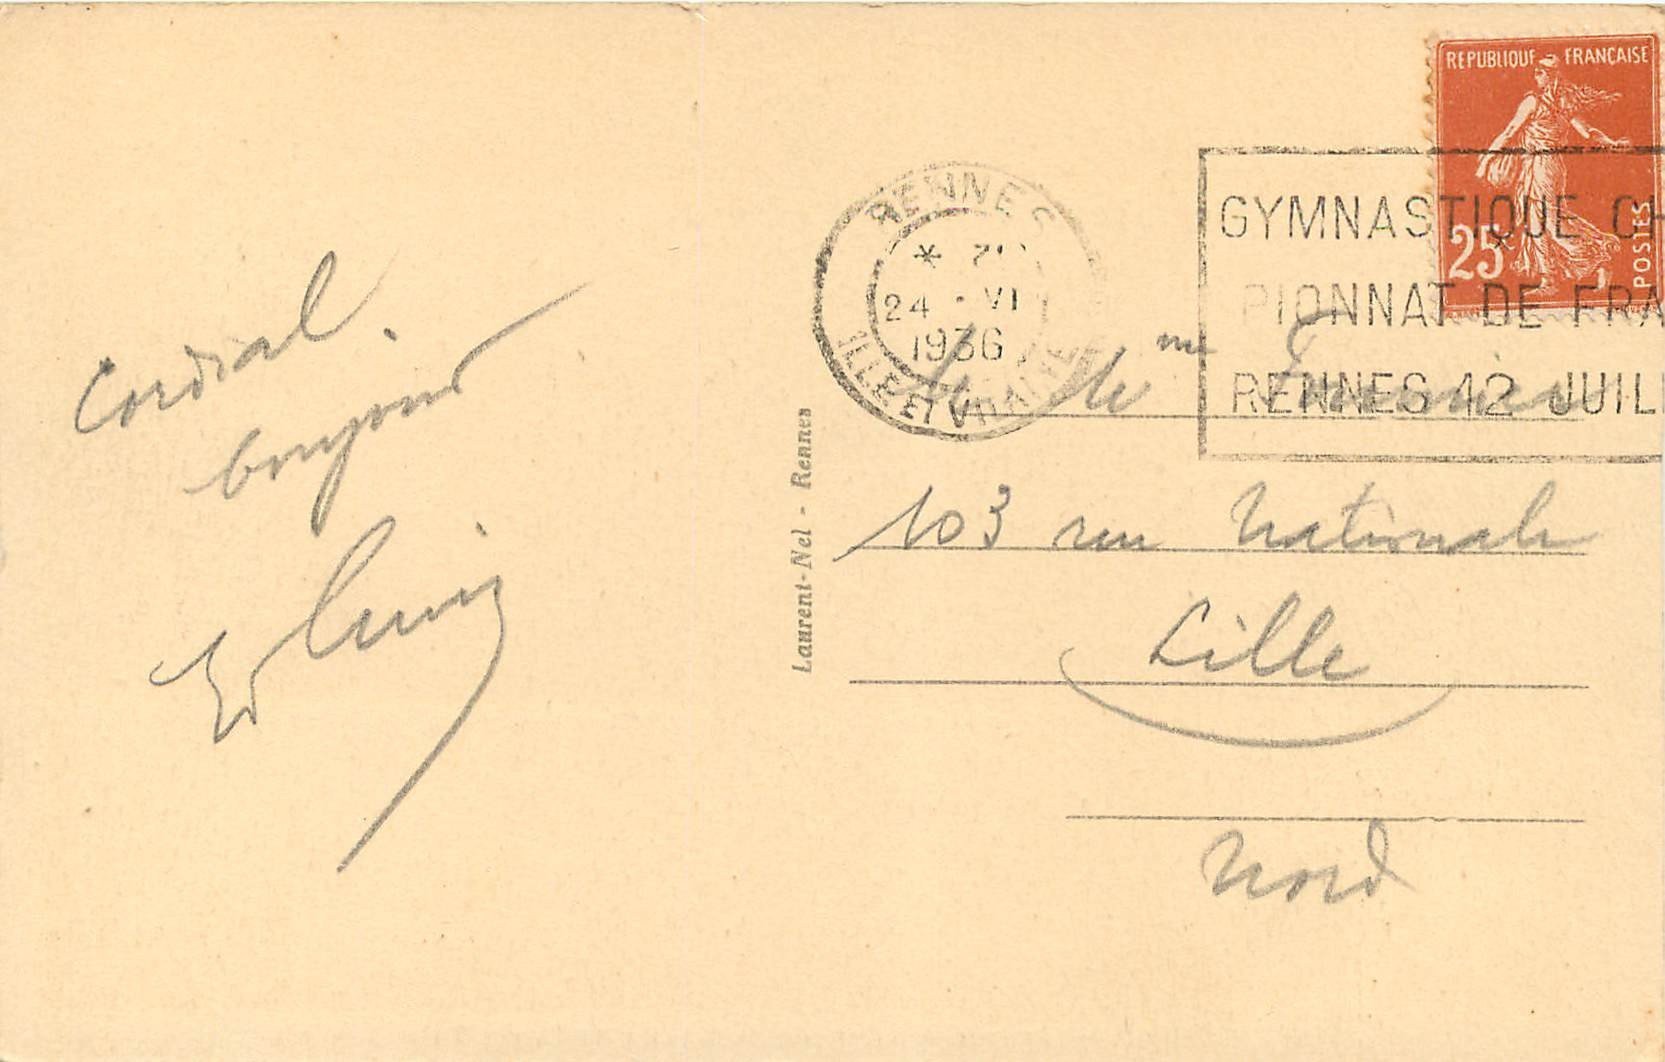 Cordial
bonjour
Laurent-Nel - Rennes
REPUBLIQUE FRANÇAISE
25c
POSTES
RENNES
* 7
24 - VI
1936
ILLE ET VILAINE
GYMNASTIQUE CH
PIONNAT DE FRA
RENNES 12 JUIL
M. et Mme
103 rue Nationale
Lille
Nord